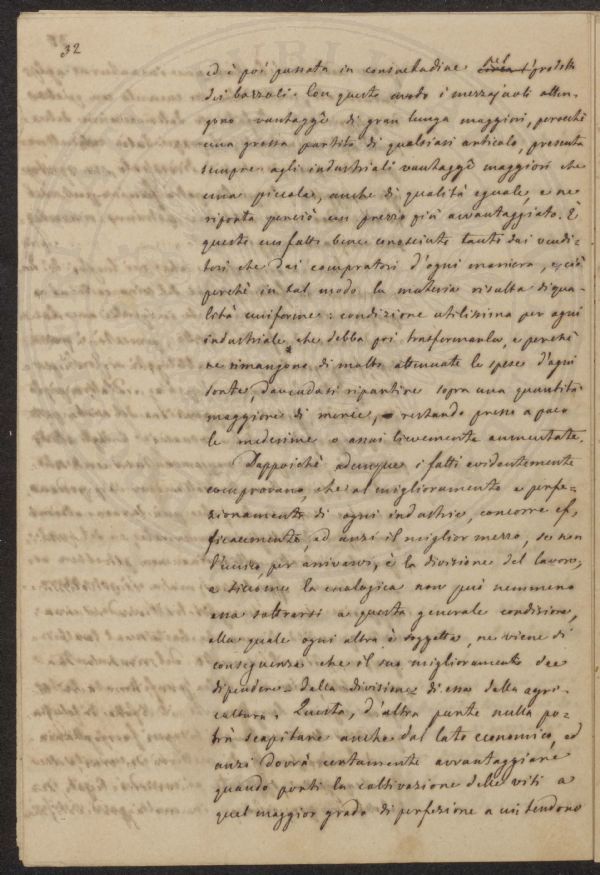 32
ed è poi passata in consuetudine pel prodotto
dei bozzoli. Con questo modo i mezzajuoli otten-
gono vantaggi di gran lunga maggiori, perocchè
una grossa partita di qualsiasi articolo, presenta
sempre agli industriali vantaggi maggiori che
una piccola, anche di qualità eguale, e ne
riporta perciò un prezzo più avvantaggiato. È
questo un fatto bene conosciuto tanto dai vendi-
tori che dai compratori d'ogni maniera, e ciò
perchè in tal modo la materia risulta di qua-
lità uniforme: condizione utilissima per ogni
industriale che debba poi trasformarla, e perchè
ne rimangono di molto attenuate le spese d'ogni
sorta, dovendosi ripartire sopra una quantità
maggiore di merce, e restando presso a poco
le medesime o assai lievemente aumentate.
Dappoichè adunque i fatti evidentemente
comprovano, che al miglioramento e perfe-
zionamento di ogni industria, concorre ef-
ficacemente, ed anzi il miglior mezzo, se non
l'unico, per arrivarvi, è la divisione del lavoro,
e siccome la enologica non può nemmeno
essa sottrarsi a questa generale condizione,
alla quale ogni altra è soggetta, ne viene di
conseguenza che il suo miglioramento dee
dipendere dalla divisione di essa dalla agri-
coltura. Questa, d'altra parte nulla po-
trà scapitare anche dal lato economico, ed
anzi dovrà certamente avvantaggiare
quando porti la coltivazione delle viti a
quel maggior grado di perfezione a cui tendono